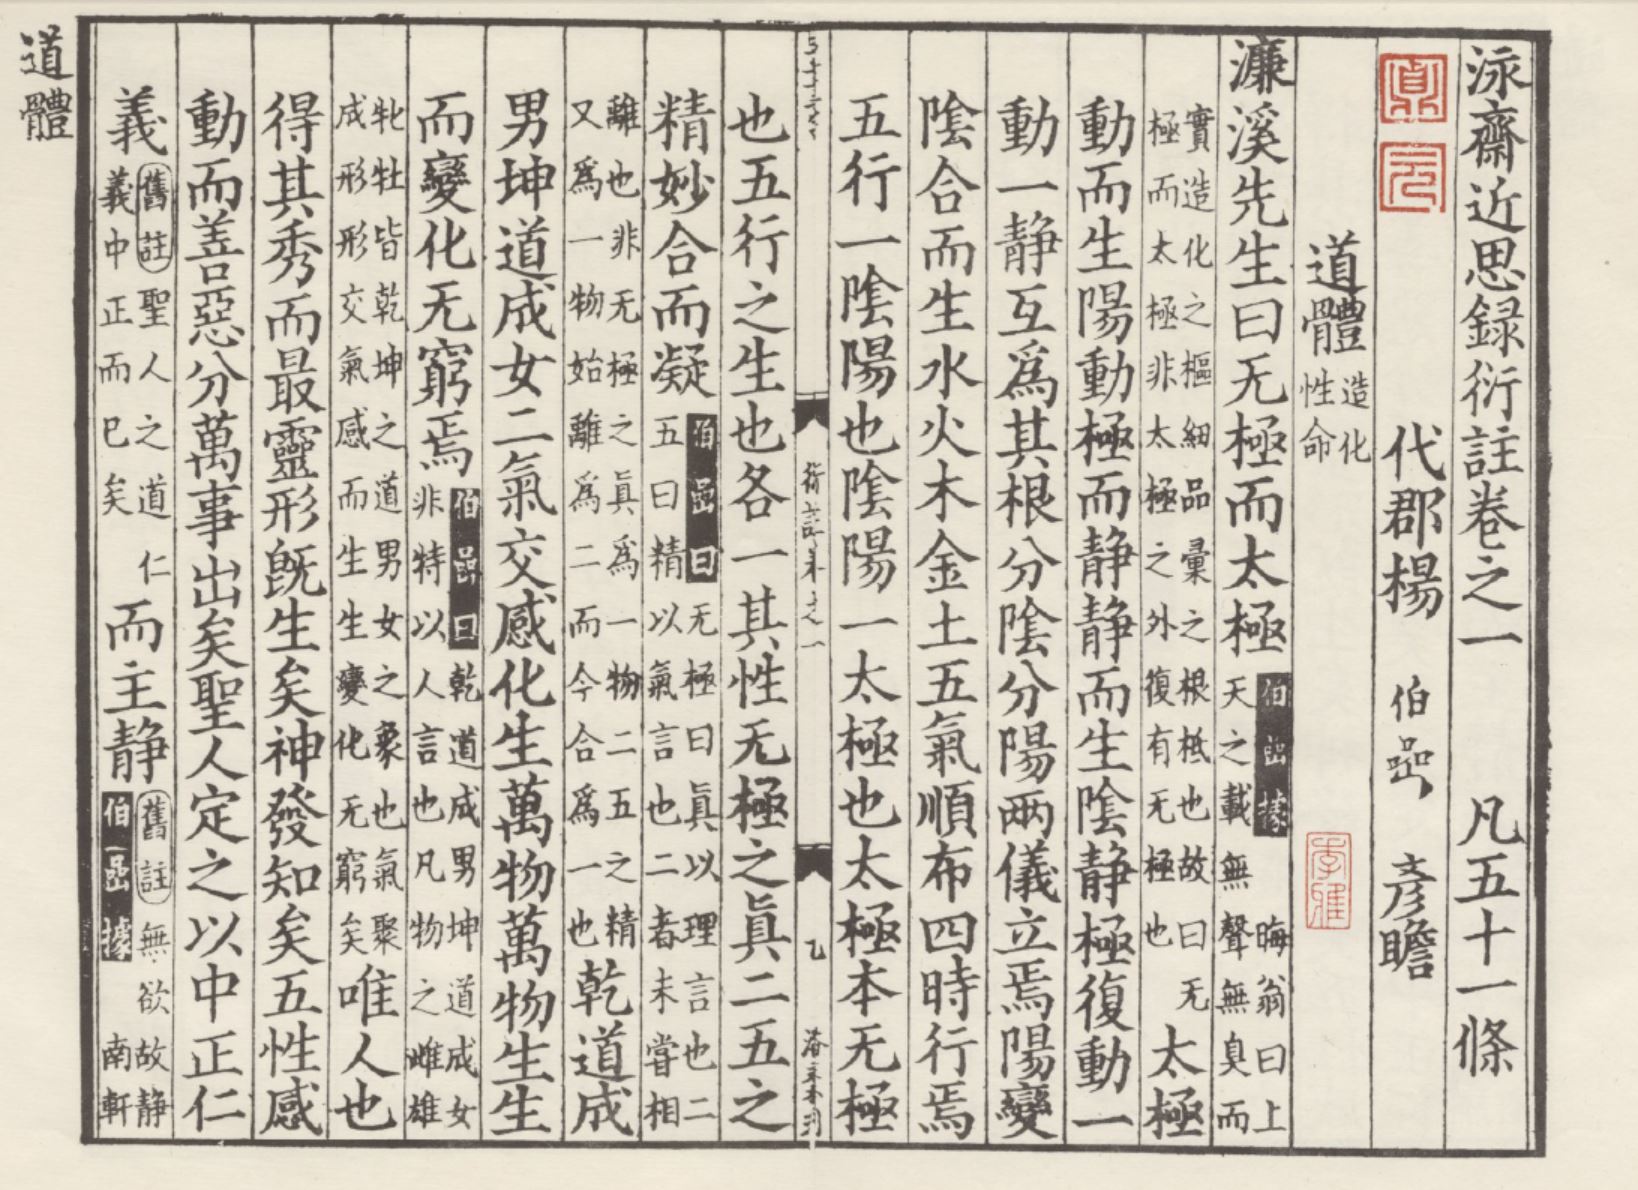 泳齋近思録衍註卷之一　凡五十一條
代郡楊　伯嵒　彥瞻
道體造化性命
濂溪先生曰无極而太極伯嵒據晦翁曰上天之載無聲無臭而
實造化之樞細品彙之根柢也故曰无極而太極非太極之外復有无極也太極
動而生陽動極而静静而生陰静極復動一
動一静互爲其根分陰分陽兩儀立焉陽變
陰合而生水火木金土五氣順布四時行焉
五行一陰陽也陰陽一太極也太極本无極
衍註卷之一　乙
也五行之生也各一其性无極之眞二五之
精妙合而凝伯嵒曰无極曰眞以理言也二五曰精以氣言也二者未嘗相
離也非无極之眞爲一物二五之精又爲一物始離爲二而今合爲一也乾道成
男坤道成女二氣交感化生萬物萬物生生
而變化无窮焉伯嵒曰乾道成男坤道成女非特以人言也凡物之雌雄
牝牡皆乾坤之道男女之象也氣聚成形形交氣感而生生變化无窮矣唯人也
得其秀而最靈形旣生矣神發知矣五性感
動而善惡分萬事出矣聖人定之以中正仁
義舊註聖人之道仁義中正而已矣而主静舊註無欲故静伯嵒據南軒
道體